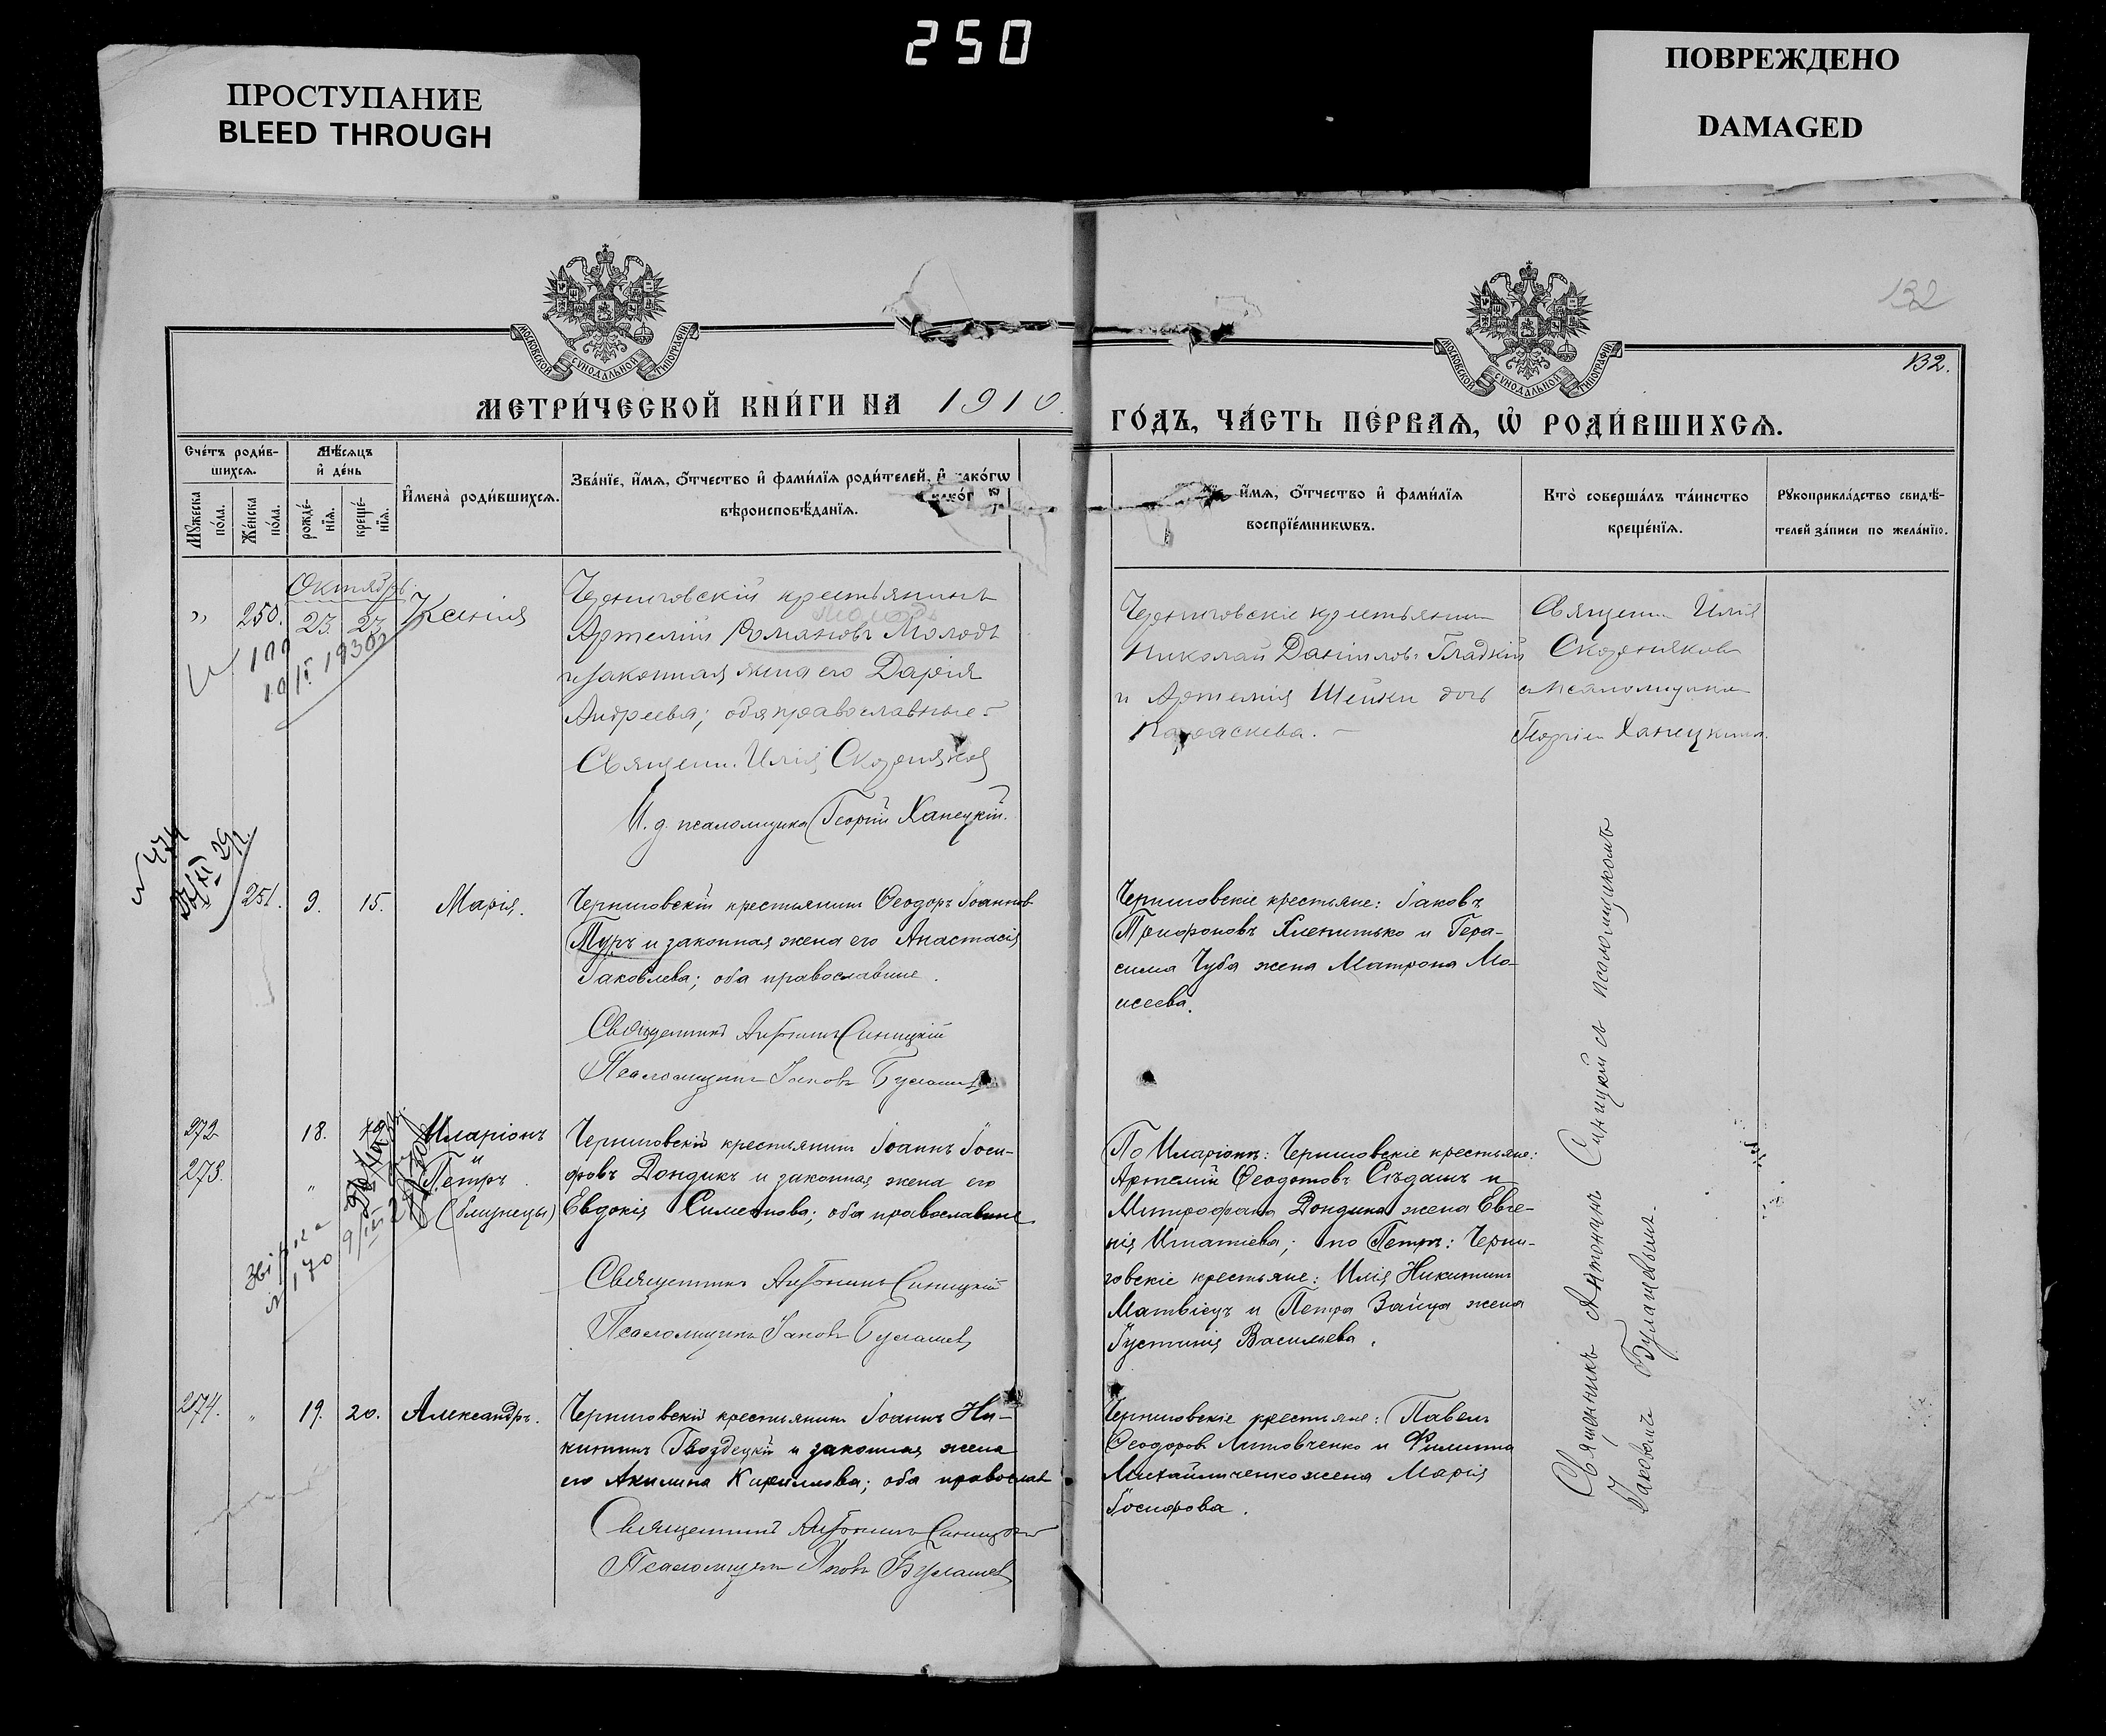 250
ПРОСТУПАНИЕ
BLEED THROUGH
ПОВРЕЖДЕНО
DAMAGED
132
132.
МОСКОВСКОЙ СУНОДАЛЬНОЙ ТИПОГРАФІИ
МОСКОВСКОЙ СУНОДАЛЬНОЙ ТИПОГРАФІИ
МЕТРИ́ЧЕСКОЙ КНИ́ГИ НА 1910
ГО́ДЪ, ЧА́СТЬ ПЕ́РВАѦ, Ѡ РОДИ́ВШИХСѦ.
Сче́тъ роди́в-
шихсѧ.
Мꙋжеска
по́ла.
Же́нска
по́ла.
Мѣ́сѧцъ
и де́нь
рожде́-
нїѧ.
креще́-
нїѧ.
Имена̀ роди́вшихсѧ.
Зва́нїе, и́мѧ, о́тчество и фами́лїѧ роди́телей, и како́гѡ
вѣроисповѣ́данїѧ.
и́мѧ, о́тчество и фами́лїѧ
воспрїе́мникѡвъ.
Кто̀ соверша́лъ та́инство
креще́нїѧ.
Рꙋкоприкла́дство свидѣ́-
телей за́писи по жела́нїю.
Октябрь
„ 250. 23. 23 Ксенія
Черниговскій крестьянинъ
Артемій Романовъ Молодъ
и законная жена его Дарія
Андреева; оба православные.
Священ. Илія Скорняков
И. д. псаломщика Георгій Ханецкій.
Черниговскіе крестьянин
Николай Даніиловъ Гладкій
и Артемія Шейки дочь
Параскева.
Священ Илія
Скорняков
с псаломщиком
Георгіем Ханецким.
№ 100
N 474
251. 9. 15. Марія.
Черниговскій крестьянинъ Ѳеодоръ Іоаннов
Туръ и законная жена его Анастасія
Іаковлева; оба православные.
Священникъ Антонинъ Синицкій
Псаломщикъ Іаковъ Булашев
Черниговскіе крестьяне: Іаковъ
Трифоновъ Хленитько и Гера-
сима Чуба жена Матрона Мо-
исеева.
272 18. Иларіонъ
и
273. „ Петръ
(близнецы)
Черниговскій крестьянинъ Іоаннъ Іоси-
фовъ Дондикъ и законная жена его
Евдокія Симеонова; оба православные
№ 170
Священникъ Антонинъ Синицкій
Псаломщикъ Іаковъ Булашев
По Иларіонѣ: Черниговскіе крестьяне:
Артемій Ѳеодотовъ Сѣдашъ и
Митрофана Дондика жена Евге-
нія Игнатіева; по Петрѣ: Черни-
говскіе крестьяне: Илія Никитинъ
Матвіецъ и Петра Зайца жена
Іустинія Васильева.
274. „ 19. 20. Александръ.
Черниговскій крестьянинъ Іоаннъ Ни-
китинъ Гвоздецкій и законная жена
его Акилина Кириллова; оба православ
Священникъ Антонинъ Синицкій
Псаломщикъ Іаковъ Булашев
Черниговскіе крестьяне: Павелъ
Ѳеодоров Литовченко и Филиппа
Михайличенко жена Марія
Іосифова.
Священникъ Антонинъ Синицкій съ псаломщикомъ
Іаковомъ Булашевымъ.